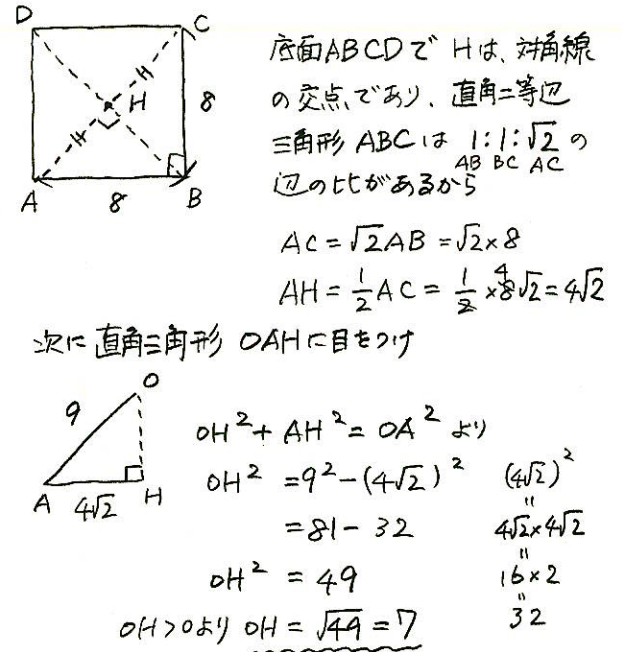 D
C
H
8
A
8
B
底面ABCDで Hは、対角線
の交点であり、直角二等辺
三角形 ABCは 1:1:√2 の
AB BC AC
辺の比があるから
AC = √2AB = √2×8
AH = 1/2 AC = 1/2 × 8√2 = 4√2
4
次に 直角三角形 OAHに目をつけ
O
9
A
4√2
H
OH² + AH² = OA² より
OH² = 9² - (4√2)²
= 81 - 32
OH² = 49
OH>0より OH = √49 = 7
(4√2)²
"
4√2×4√2
"
16×2
"
32